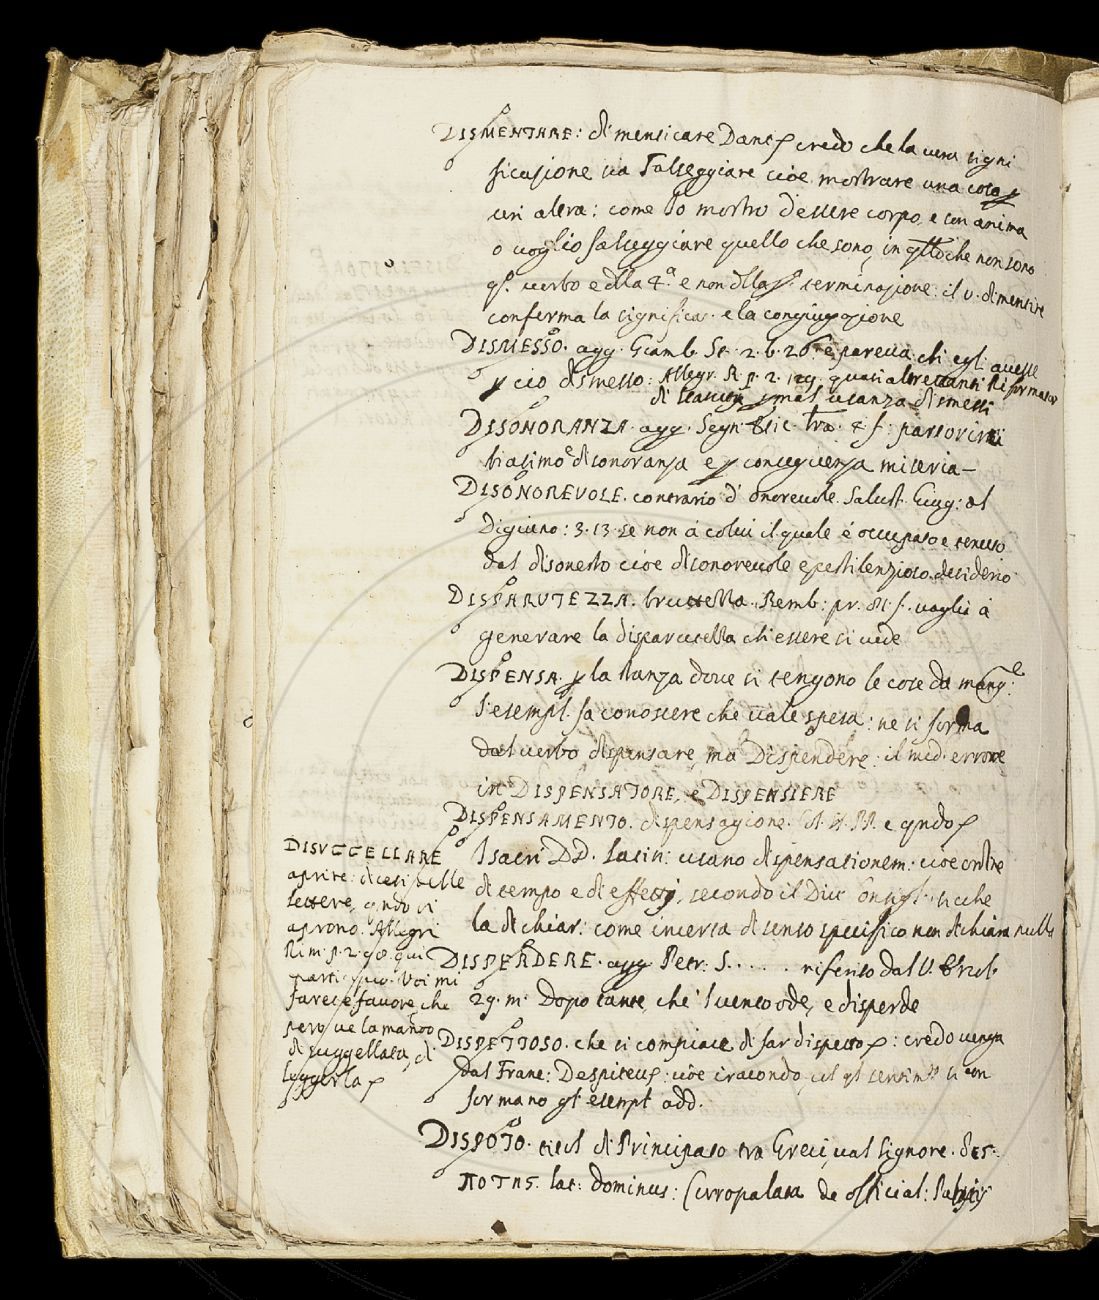 DISMENTARE: dimenticare Dante credo che la vera signi
ficazione sia Falseggiare cioè mostrare una cosa
un altra: come Io mostro d'essere corpo, e con anima
o voglio falseggiare quello che sono, in che non sono
verbo e della 4.ª e non della terminazione: il v. dimentire
conferma la significaz. e la congiugazione
DISMESSO. agg. Giamb. 2. b. 26. e pareva ch' egl. avesse
cio dismesso: Allegr. R. p. 2. 129. quasi altrettanti Riformator
di usanza dismessi
DISONORANZA. agg. Segn. Etic. 4. f: partorirei
biasimo e disonoranza e conseguenza miseria
DISONOREVOLE. contrario d' onorevole. Salust. Giug: al
Digiuno: 3. 13. se non à colui il quale é occupato e tenuto
dal disonesto cioè disonorevole e pestilenzioso desiderio
DISPARUTEZZA. bruttezza. Bemb: pr. 81. f. voglia á
generare la disparutezza ch'essere si vede
DISPENSA. la stanza dove si tengono le cose da mang.e:
l'esempl. fa conoscere che vale spesa: ne si forma
dal verbo dispensare, ma Dispendere: il med. errore
in DISPENSATORE, e DISPENSIERE
DISPENSAMENTO. dispensagione. e qndo
I sacri DD. Latin: usano dispensationem. cioe ordine
di tempo e di effetti, secondo il sicche
la dichiar: come incerta di senso specifico non dichiara nulla
DISPERDERE. agg. Petr: S. . . . . . riferito dal V.
29. m. Dopo tante, che 'l vento ode, e disperde
DISPETTOSO. che si compiace di far dispetto: credo venga
dal Franc: Despiteus: cioè iracondo, sentim.ti si con
formano gl' esempl. add.
DISPOTO. titol di Principato tra Greci, val Signore. δεσ-
ποτης. lat: dominus: Curopalata de official: Palatij
DISUGGELLARE
aprire: dicesi delle
lettere, qndo si
aprono. Allegri
Rim. p. 2. 90. qui
partecipio. Voi mi
fareste favore, che
pero ve la mando
disuggellata, di
leggerla